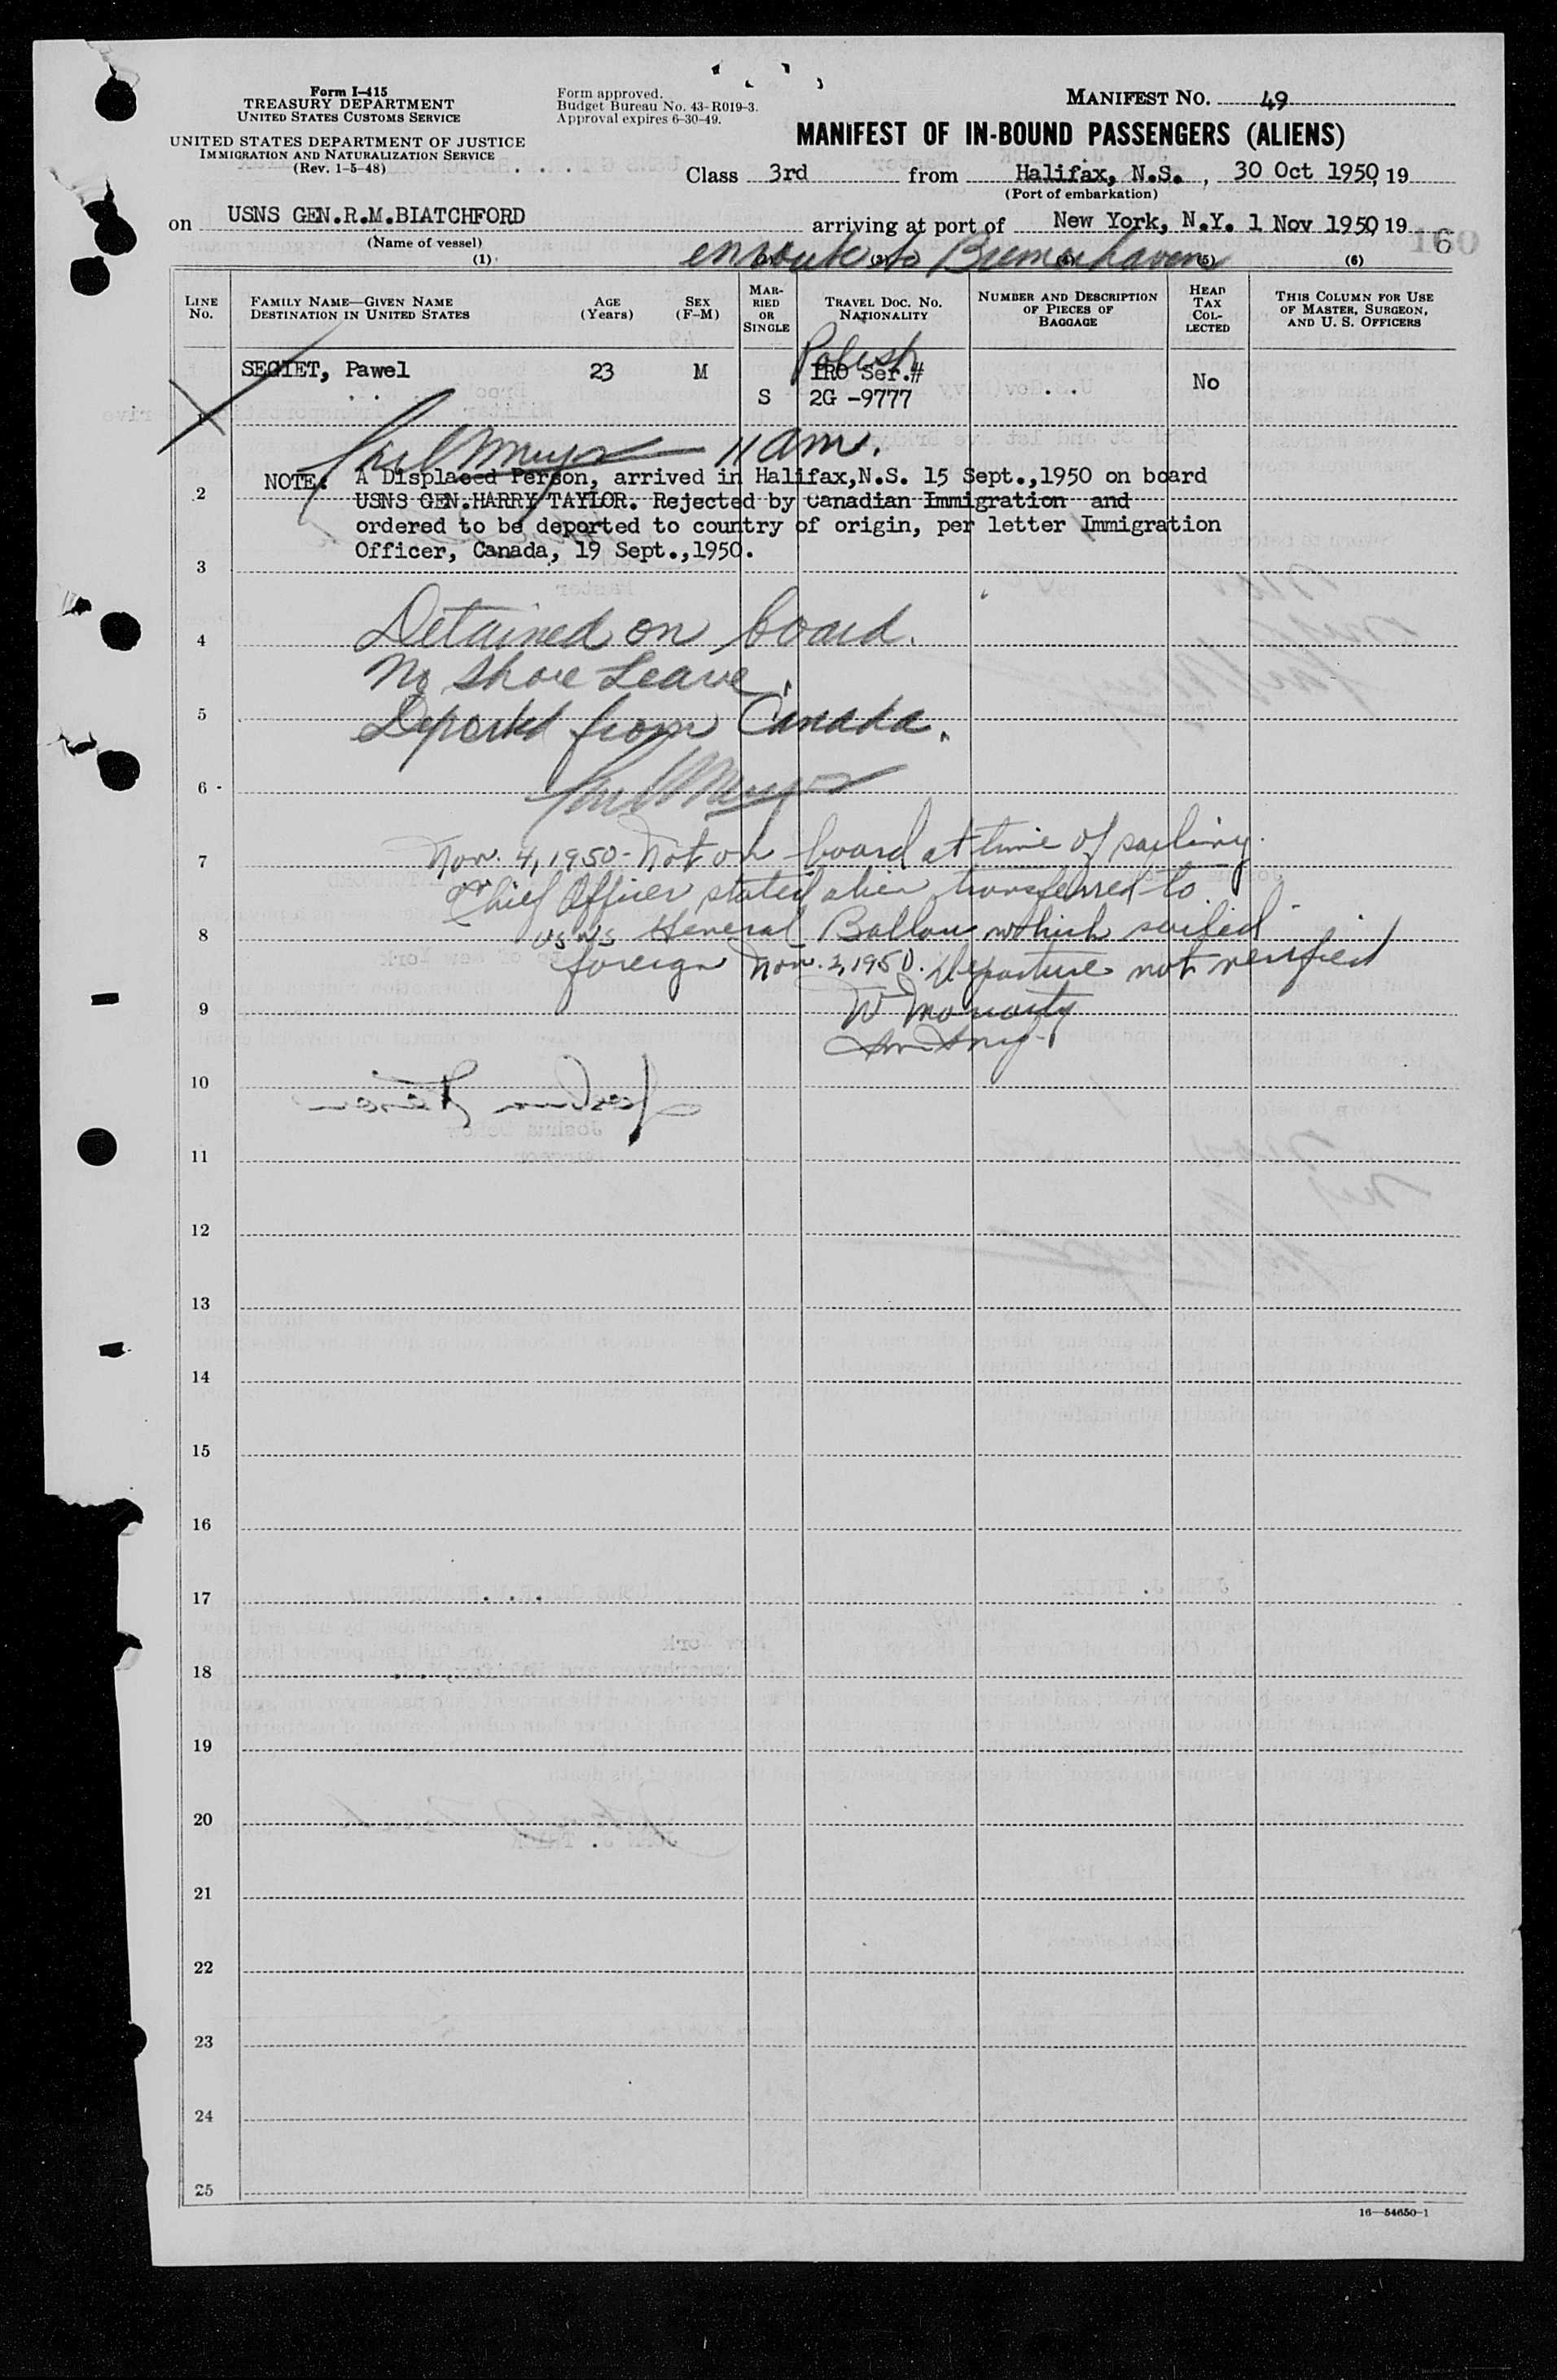 Form I-415
TREASURY DEPARTMENT
UNITED STATES CUSTOMS SERVICE
UNITED STATES DEPARTMENT OF JUSTICE
IMMIGRATION AND NATURALIZATION SERVICE
(Rev. 1-5-48)
Form approved.
Budget Bureau No. 43-R019-3.
Approval expires 6-30-49.
MANIFEST NO. 49
MANIFEST OF IN-BOUND PASSENGERS (ALIENS)
Class 3rd from Halifax, N.S., 30 Oct 1950, 19
(Port of embarkation)
on USNS GEN.R.M.BLATCHFORD arriving at port of New York, N.Y. 1 Nov 1950, 19
(Name of vessel)
6
enroute to Bremerhaven
(1) (2) (3) (4) (5) (6)
LINE No.
FAMILY NAME—GIVEN NAME
DESTINATION IN UNITED STATES
AGE (Years)
SEX (F-M)
MARRIED OR SINGLE
TRAVEL DOC. NO. NATIONALITY
NUMBER AND DESCRIPTION OF PIECES OF BAGGAGE
HEAD TAX COLLECTED
THIS COLUMN FOR USE OF MASTER, SURGEON, AND U. S. OFFICERS
Polish
SEGIET, Pawel 23 M IRO Ser.# No
1 S 2G -9777
11 am.
NOTE: A Displaced Person, arrived in Halifax,N.S. 15 Sept.,1950 on board
2 USNS GEN.HARRY TAYLOR. Rejected by Canadian Immigration and
ordered to be deported to country of origin, per letter Immigration
Officer, Canada, 19 Sept.,1950.
3
4 Detained on board.
No Shore Leave.
5 Deported from Canada.
6
7 Nov. 4, 1950 - Not on board at time of sailing.
Chief Officer stated alien transferred to
8 USNS General Ballou which sailed
foreign Nov. 2, 1950. Departure not verified
9 W Moriarty
10
11
12
13
14
15
16
17
18
19
20
21
22
23
24
25
16—54650-1